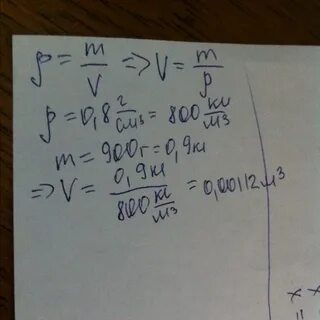 ρ = m/V => V = m/ρ
ρ = 0,8 г/см³ = 800 кг/м³
m = 900г = 0,9кг
=> V = 0,9кг / 800 кг/м³ = 0,00112м³
х х